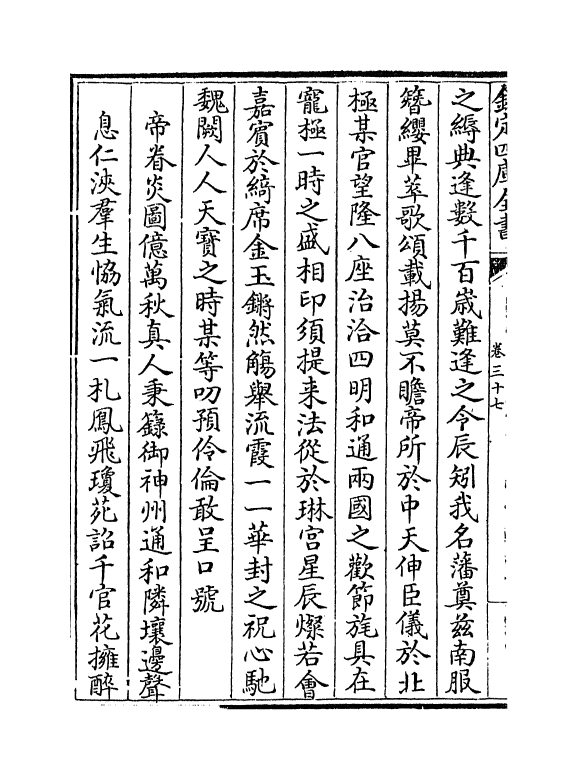 欽定四庫全書
卷三十七
之縟典逢數千百歲難逢之今辰矧我名藩奠兹南服
簪纓畢萃歌頌載揚莫不瞻帝所於中天伸臣儀於北
極某官望隆八座治洽四明和通兩國之歡節旄具在
寵極一時之盛相印須提来法從於琳宫星辰燦若會
嘉賓於綺席金玉鏘然觴舉流霞一一華封之祝心馳
魏闕人人天寶之時某等叨預伶倫敢呈口號
帝眷炎圖億萬秋真人秉籙御神州通和隣壤邊聲
息仁浹羣生恊氣流一札鳳飛瓊苑詔千官花擁醉